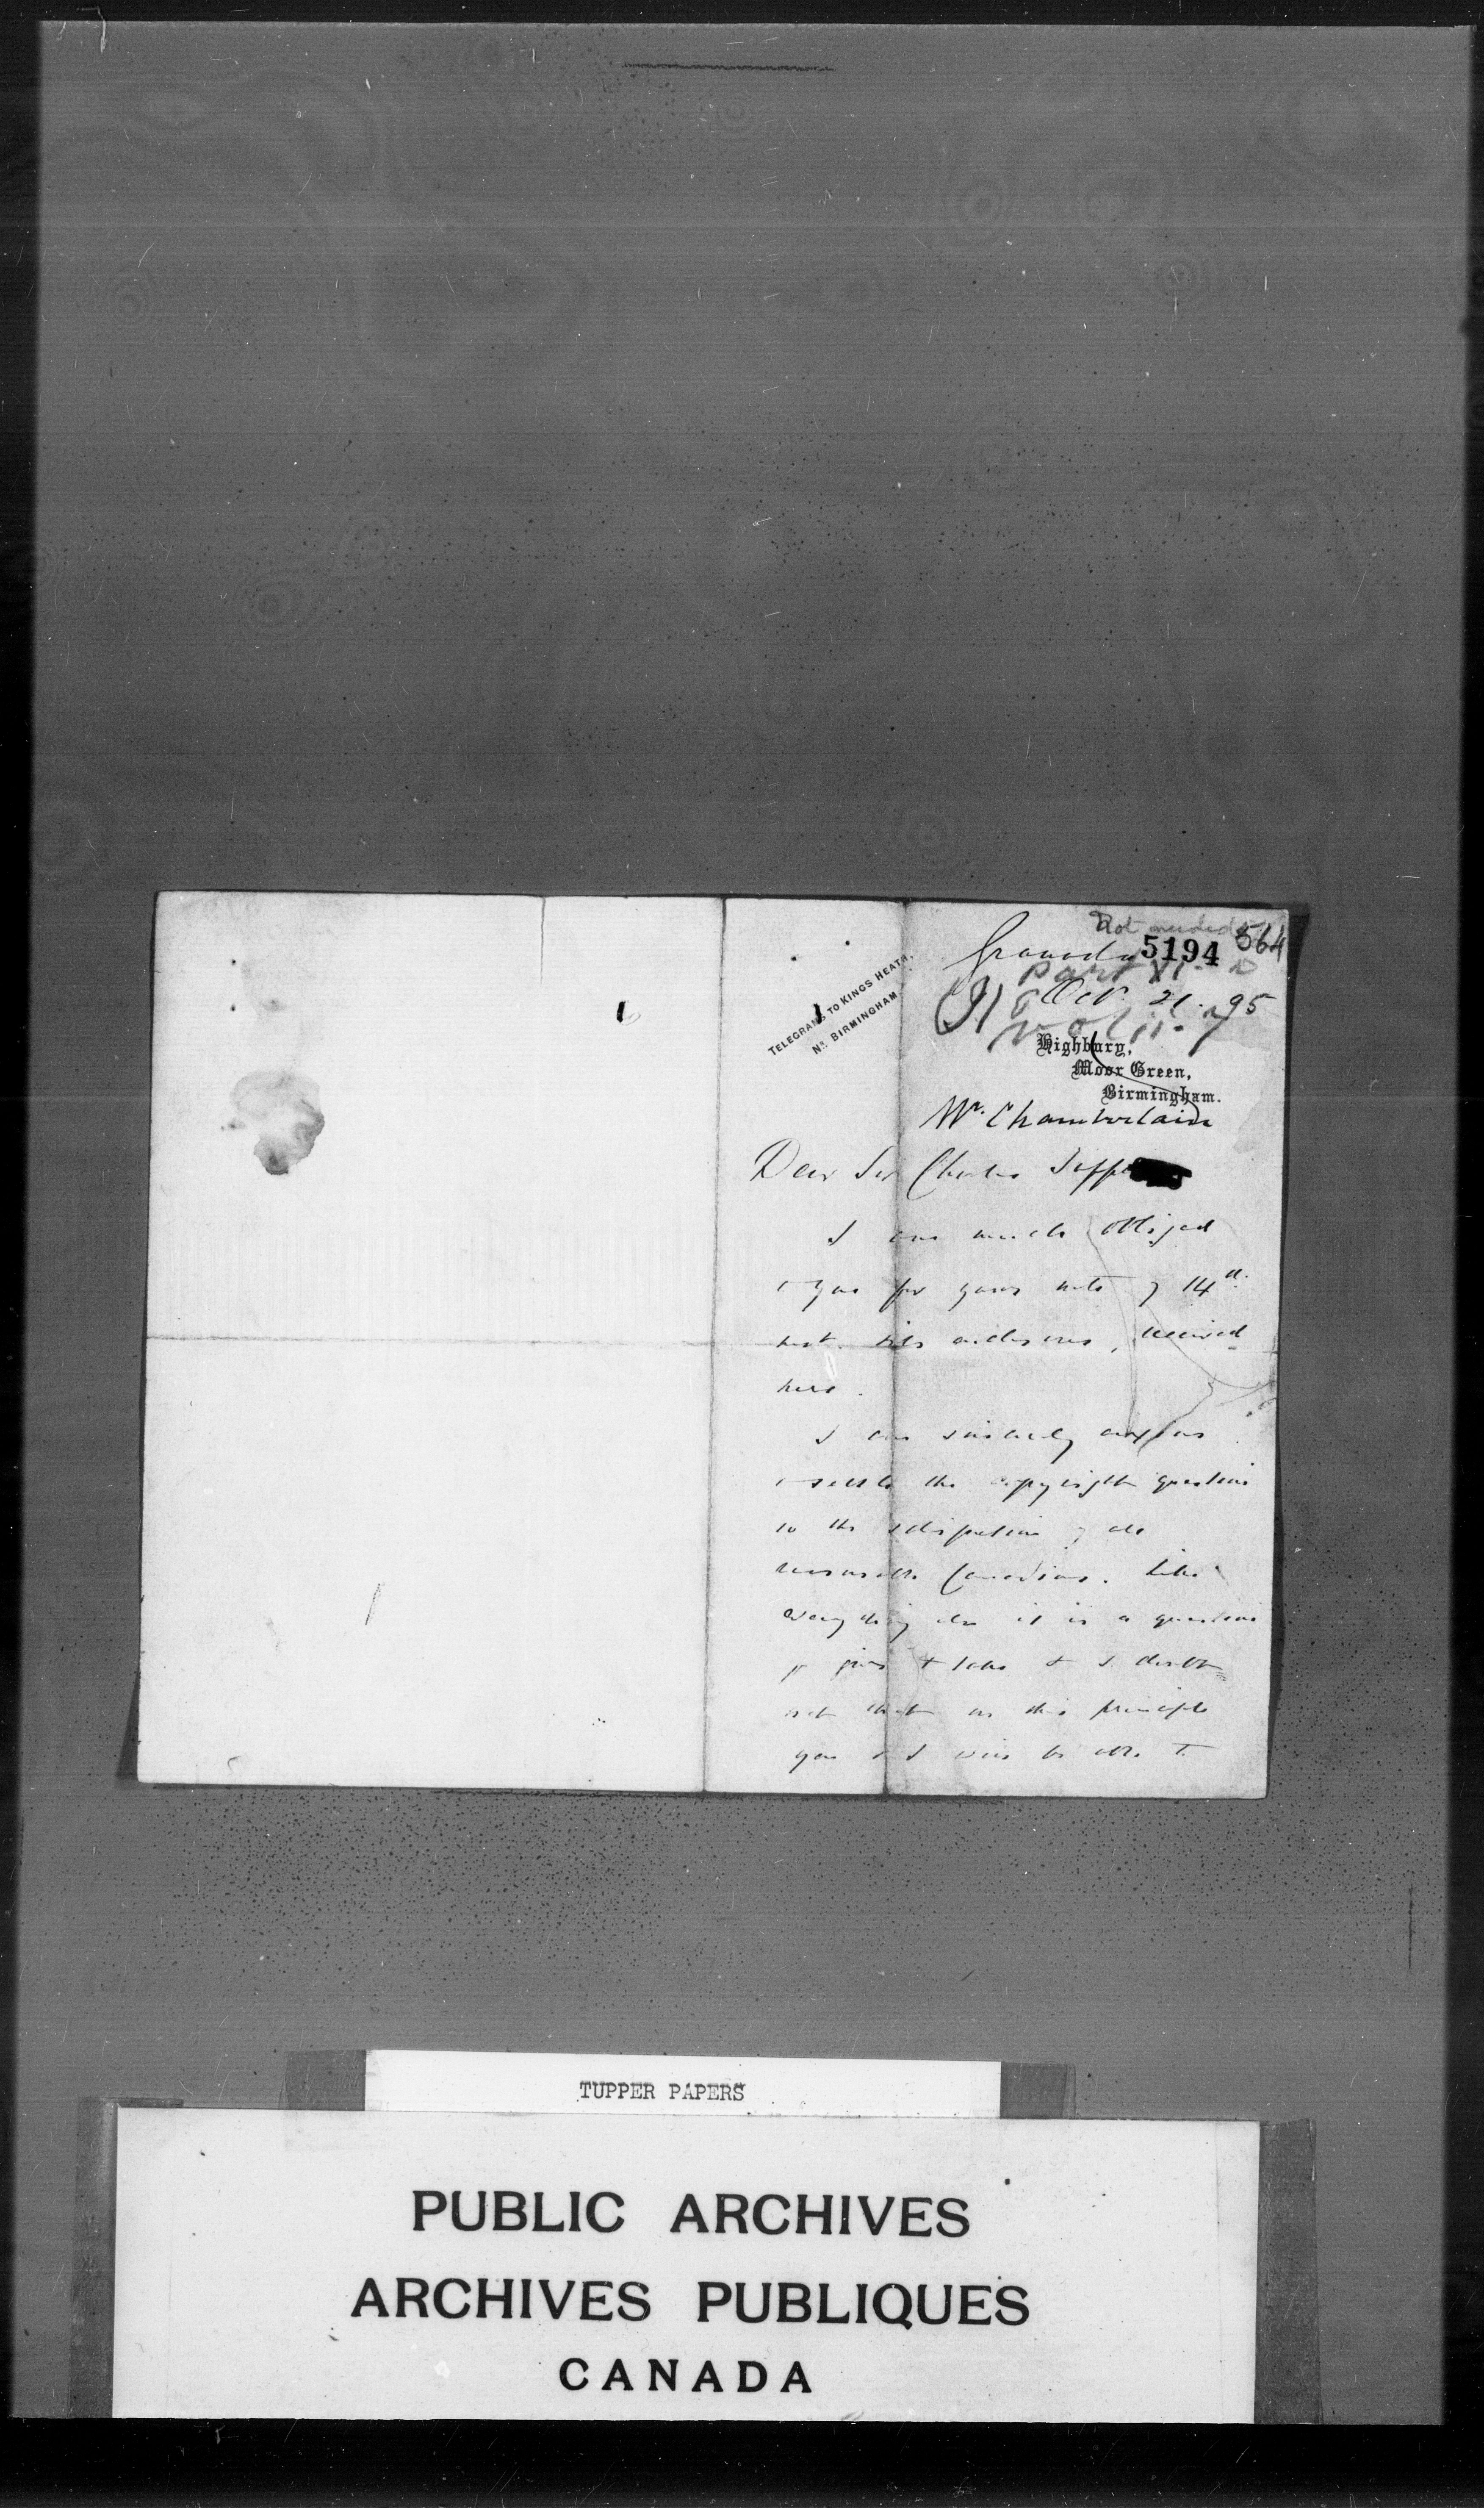 Not needed
Granada 5194 564
Part VI
Oct. 21. 95
vol ii.
TELEGRAMS TO KINGS HEATH,
Nr BIRMINGHAM.
Highbury,
Moor Green,
Birmingham.
Mr. Chamberlain
Dear Sir Charles Tupper
I am much obliged
to you for your note of 14th
inst. with enclosures, received
here.
I am sincerely anxious
to settle the copyright question
to the satisfaction of all
reasonable Canadians. Like
everything else it is a question
of give & take & I doubt
not that on this principle
you & I will be able to
TUPPER PAPERS
PUBLIC ARCHIVES
ARCHIVES PUBLIQUES
CANADA